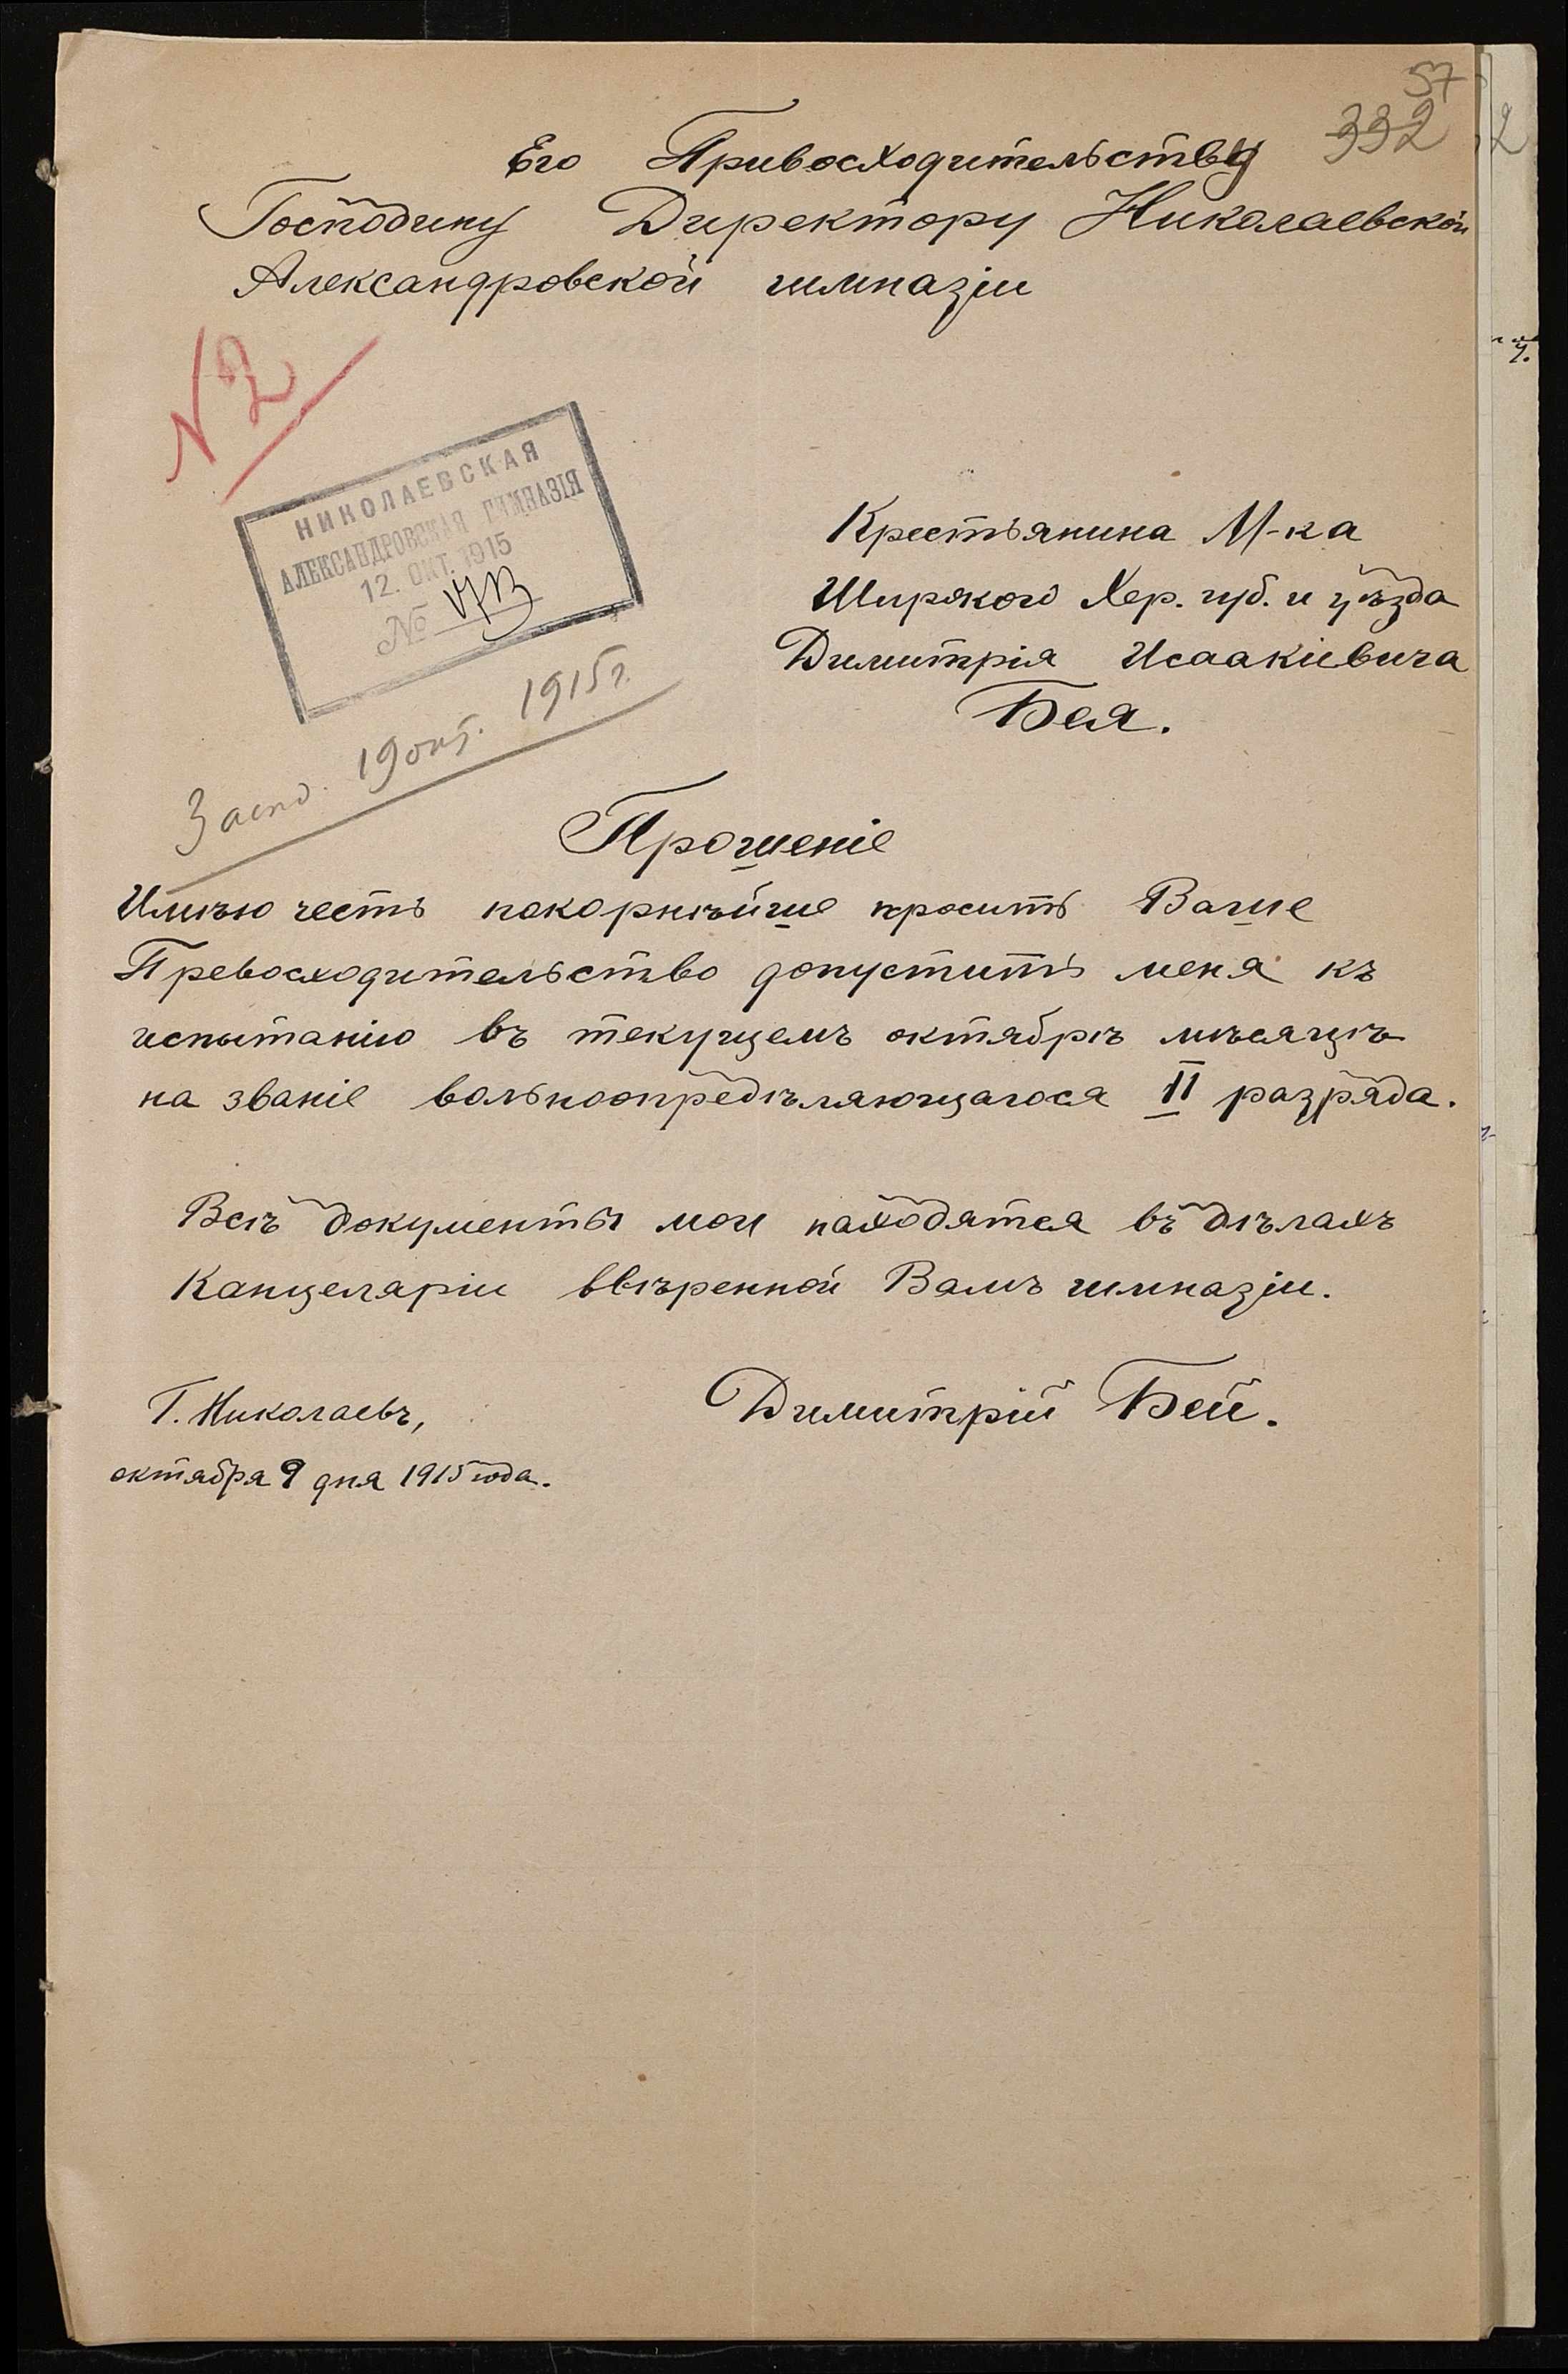 57
332
Его Привосходительству
Господину Директору Николаевской
Александровской гимназіи
N 2
НИКОЛАЕВСКАЯ
АЛЕКСАНДРОВСКАЯ ГИМНАЗІЯ
12. ОКТ. 1915
№
Крестьянина М-ка
Широкого Хер. губ. и уѣзда
Димитрія Исаакіевича
Бея.
19 окт. 1915 г.
Прошеніе
Имѣю честь покорнѣйше просить Ваше
Превосходительство допустить меня къ
испытанію въ текущемъ октябрѣ мѣсяцѣ
на званіе вольноопредѣляющагося II разряда.
Всѣ документы мои находятся въ дѣлахъ
Канцеляріи ввѣренной Вамъ гимназіи.
Г. Николаевъ,
Димитрій Бей.
октября 9 дня 1915 года.